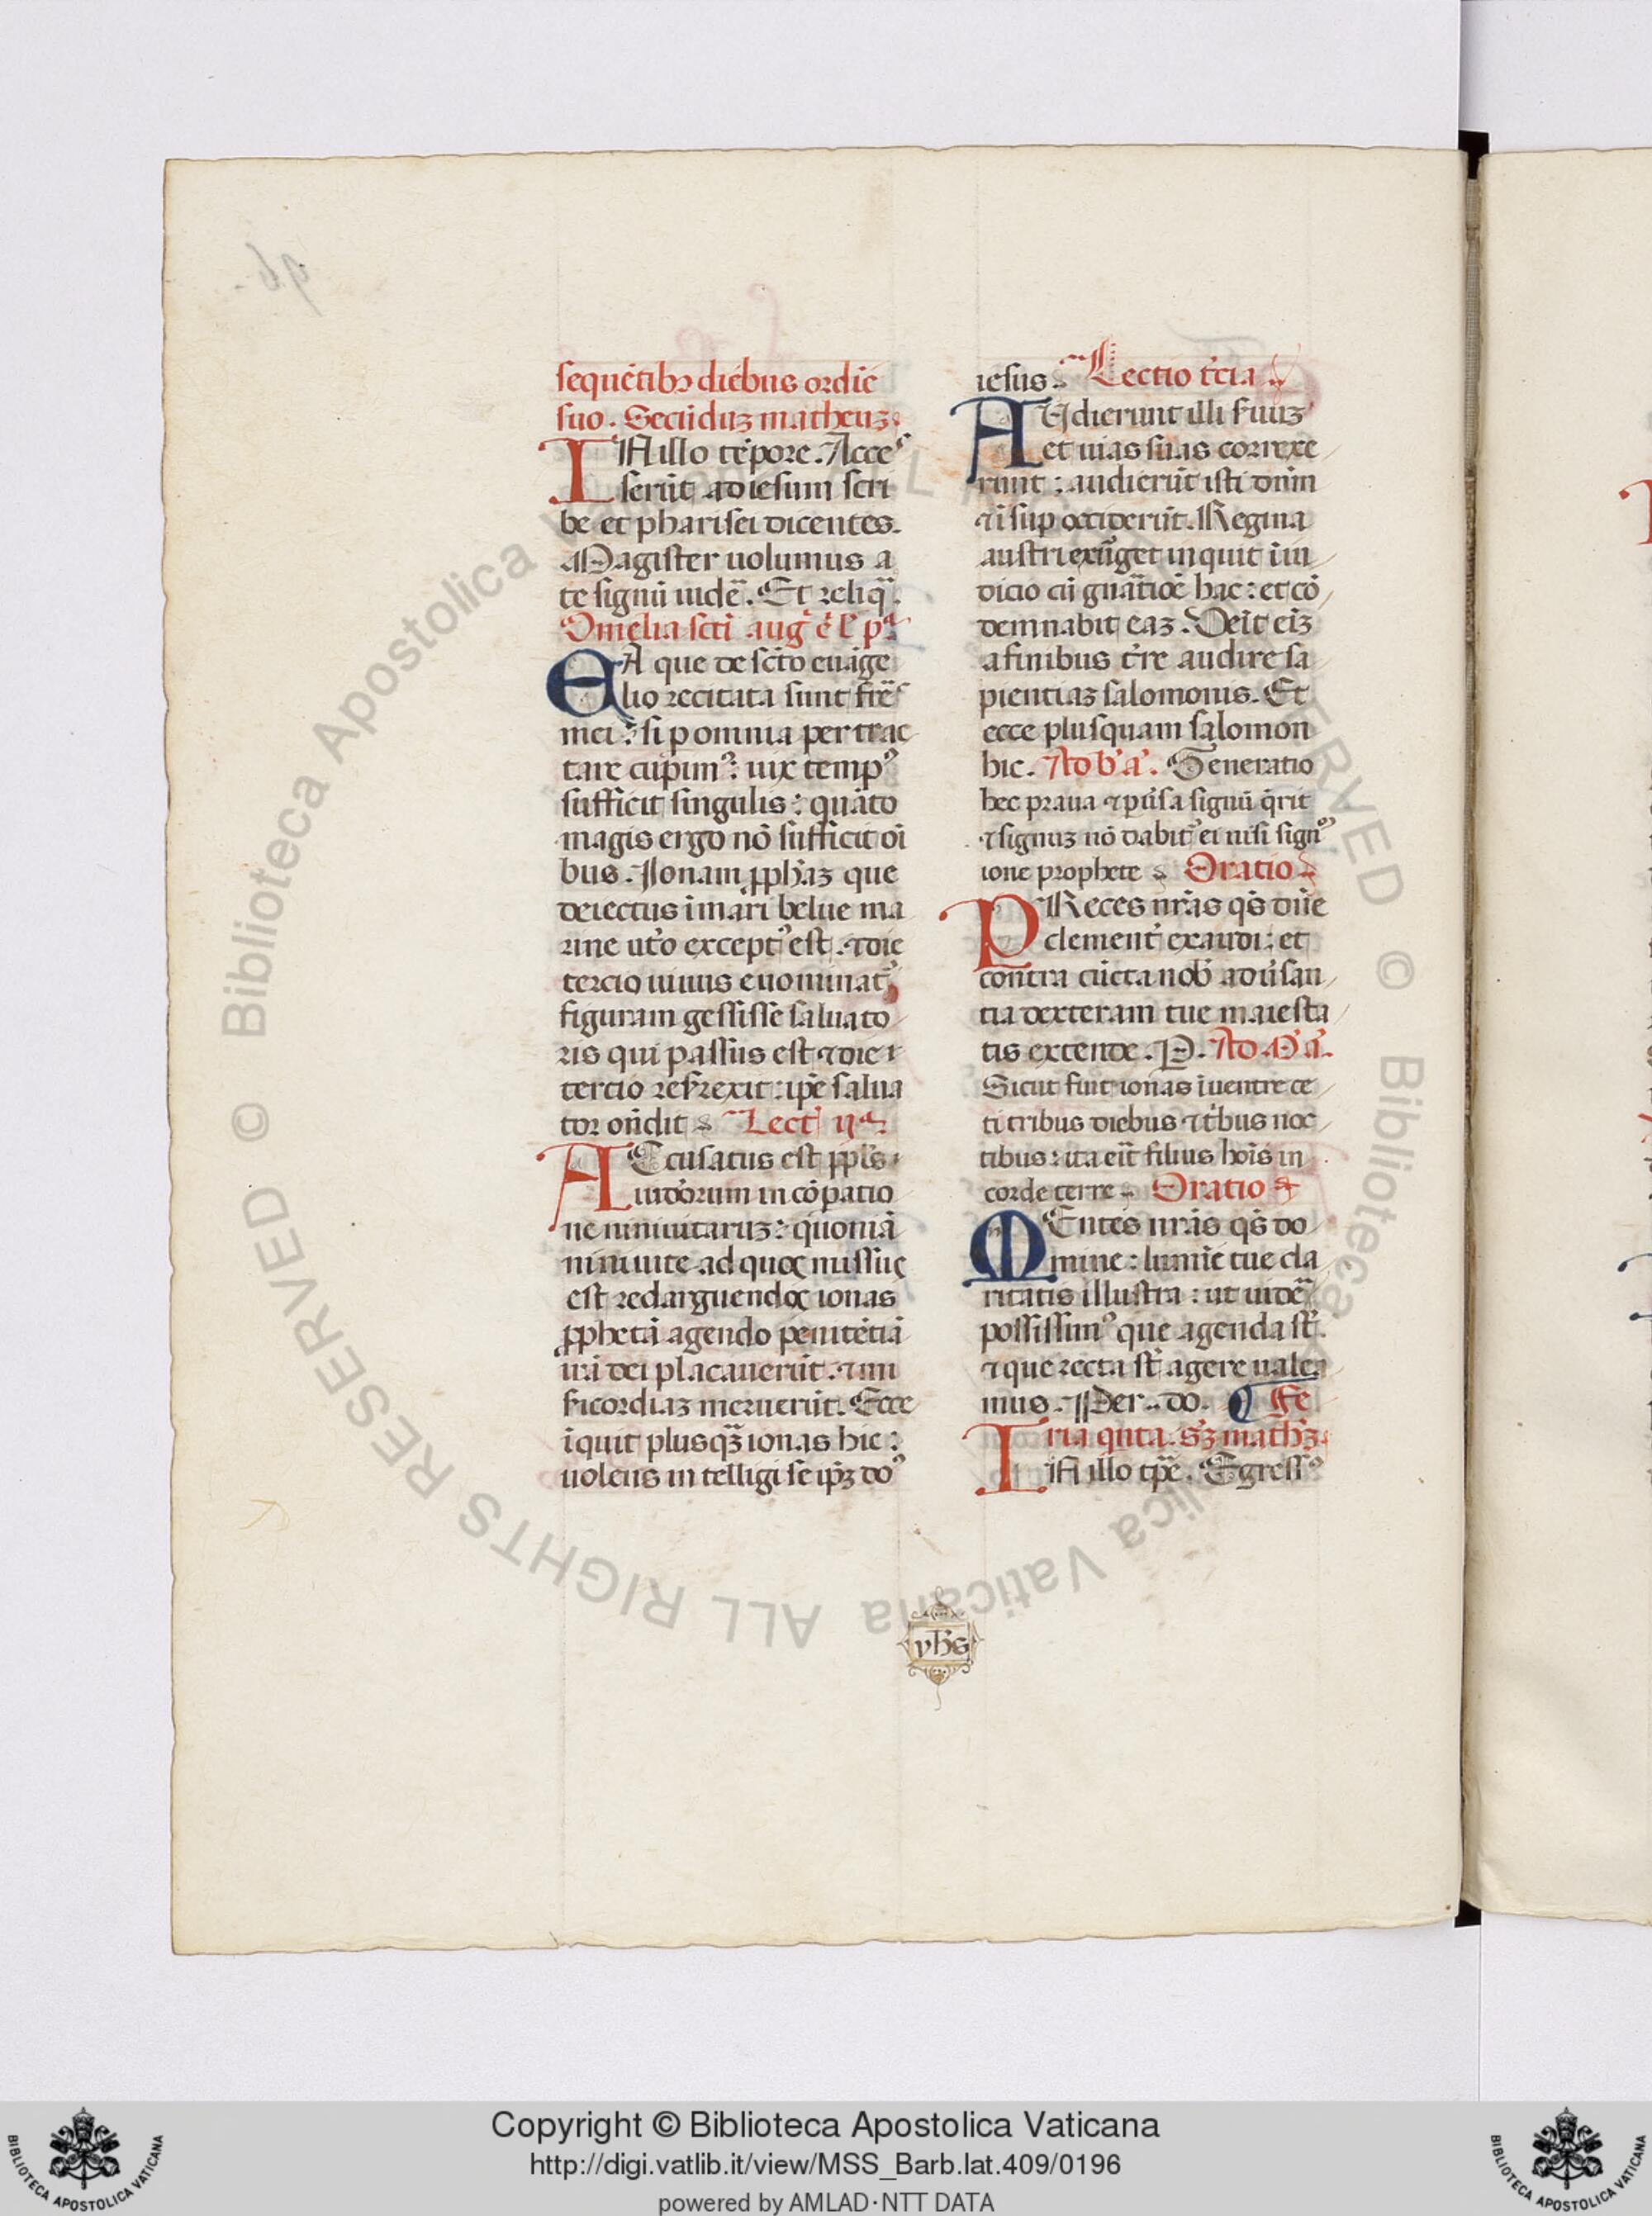 sequētibꝫ diebus ordīe
suo. Secūduꝫ matheuꝫ.
IN illo tēpore. Acces
serūt ad iesum scri
be et pharisei dicentes.
Magister uolumus a
te signū uidē̄. Et reliq̄.
Omelia scti augˀ ē l p
EA que de scō euāge
lio recitata sunt frēs
mei: si p omnia pertrac
tare cupimꝰ: uix tempꝰ
sufficit singulis: quāto
magis ergo nō sufficit oī
bus. Ionam ꝓphaꝫ que
deiectus ī mari belue ma
rine uto exceptꝰ est. ⁊ die
tercio uiuus euominatˀ
figuram gessisse saluato
ris qui passus est ⁊ die
tercio resrexit: ipē salua
tor on̄dit Lectˀ ijᵃ
ACcusatus est ppls
iudorum in cōpatio
ne niniuitaruꝫ: quoniā
niniuite ad quoꝝ missus
est redarguendoꝝ ionas
ꝓphetā agendo penitētiā
irā dei placauerūt. ⁊ mi
sicordiaꝫ meruerūt. Ecce
īquit plusqꝫ ionas hic:
uolens intelligi se ipꝫ doꝰ
iesus. Lectio tˀcia
AUdierunt illi suuꝫ
et uias suas correxe
runt: audierūt isti dn̄m
⁊ īsup occiderūt. Regina
austri exurget inquit ī iu
dicio cū gn̄atiōe hac: et cō
demnabit eaꝫ. Ueīt eiꝫ
a finibus tˀre audire sa
pientiaꝫ salomonis. Et
ecce plusquam salomon
hic. Ad b' a'. Generatio
hec praua ⁊ puˀsa signū q̄rit
⁊ signuꝫ nō dabitˀ ei nisi signꝰ
ione prophete Oratio
PReces nr̄as qs̄ dn̄e
clementˀ exaudi: et
contra cūcta nobˀ aduˀsan
tia dexteram tue maiesta
tis extende. P. Ad M' a'.
Sicut fuit ionas ī uentre ce
ti tribus diebus ⁊ tˀbus noc
tibus: ita erit filius hoīs in
corde terre Oratio
MEntes nr̄as qs̄ do
mine: lumīe tue cla
ritatis illustra: ut uidē̄
possissimꝰ que agenda st̄.
⁊ que recta st̄ agere uale
mus. Per. do. ¶ Fe
ria qnta. sꝫ mathꝫ.
IN illo tpe. Egressꝰ
yhs
© Biblioteca Apostolica Vaticana ALL RIGHTS RESERVED
Copyright © Biblioteca Apostolica Vaticana
http://digi.vatlib.it/view/MSS_Barb.lat.409/0196
powered by AMLAD·NTT DATA
BIBLIOTECA APOSTOLICA VATICANA
BIBLIOTECA APOSTOLICA VATICANA